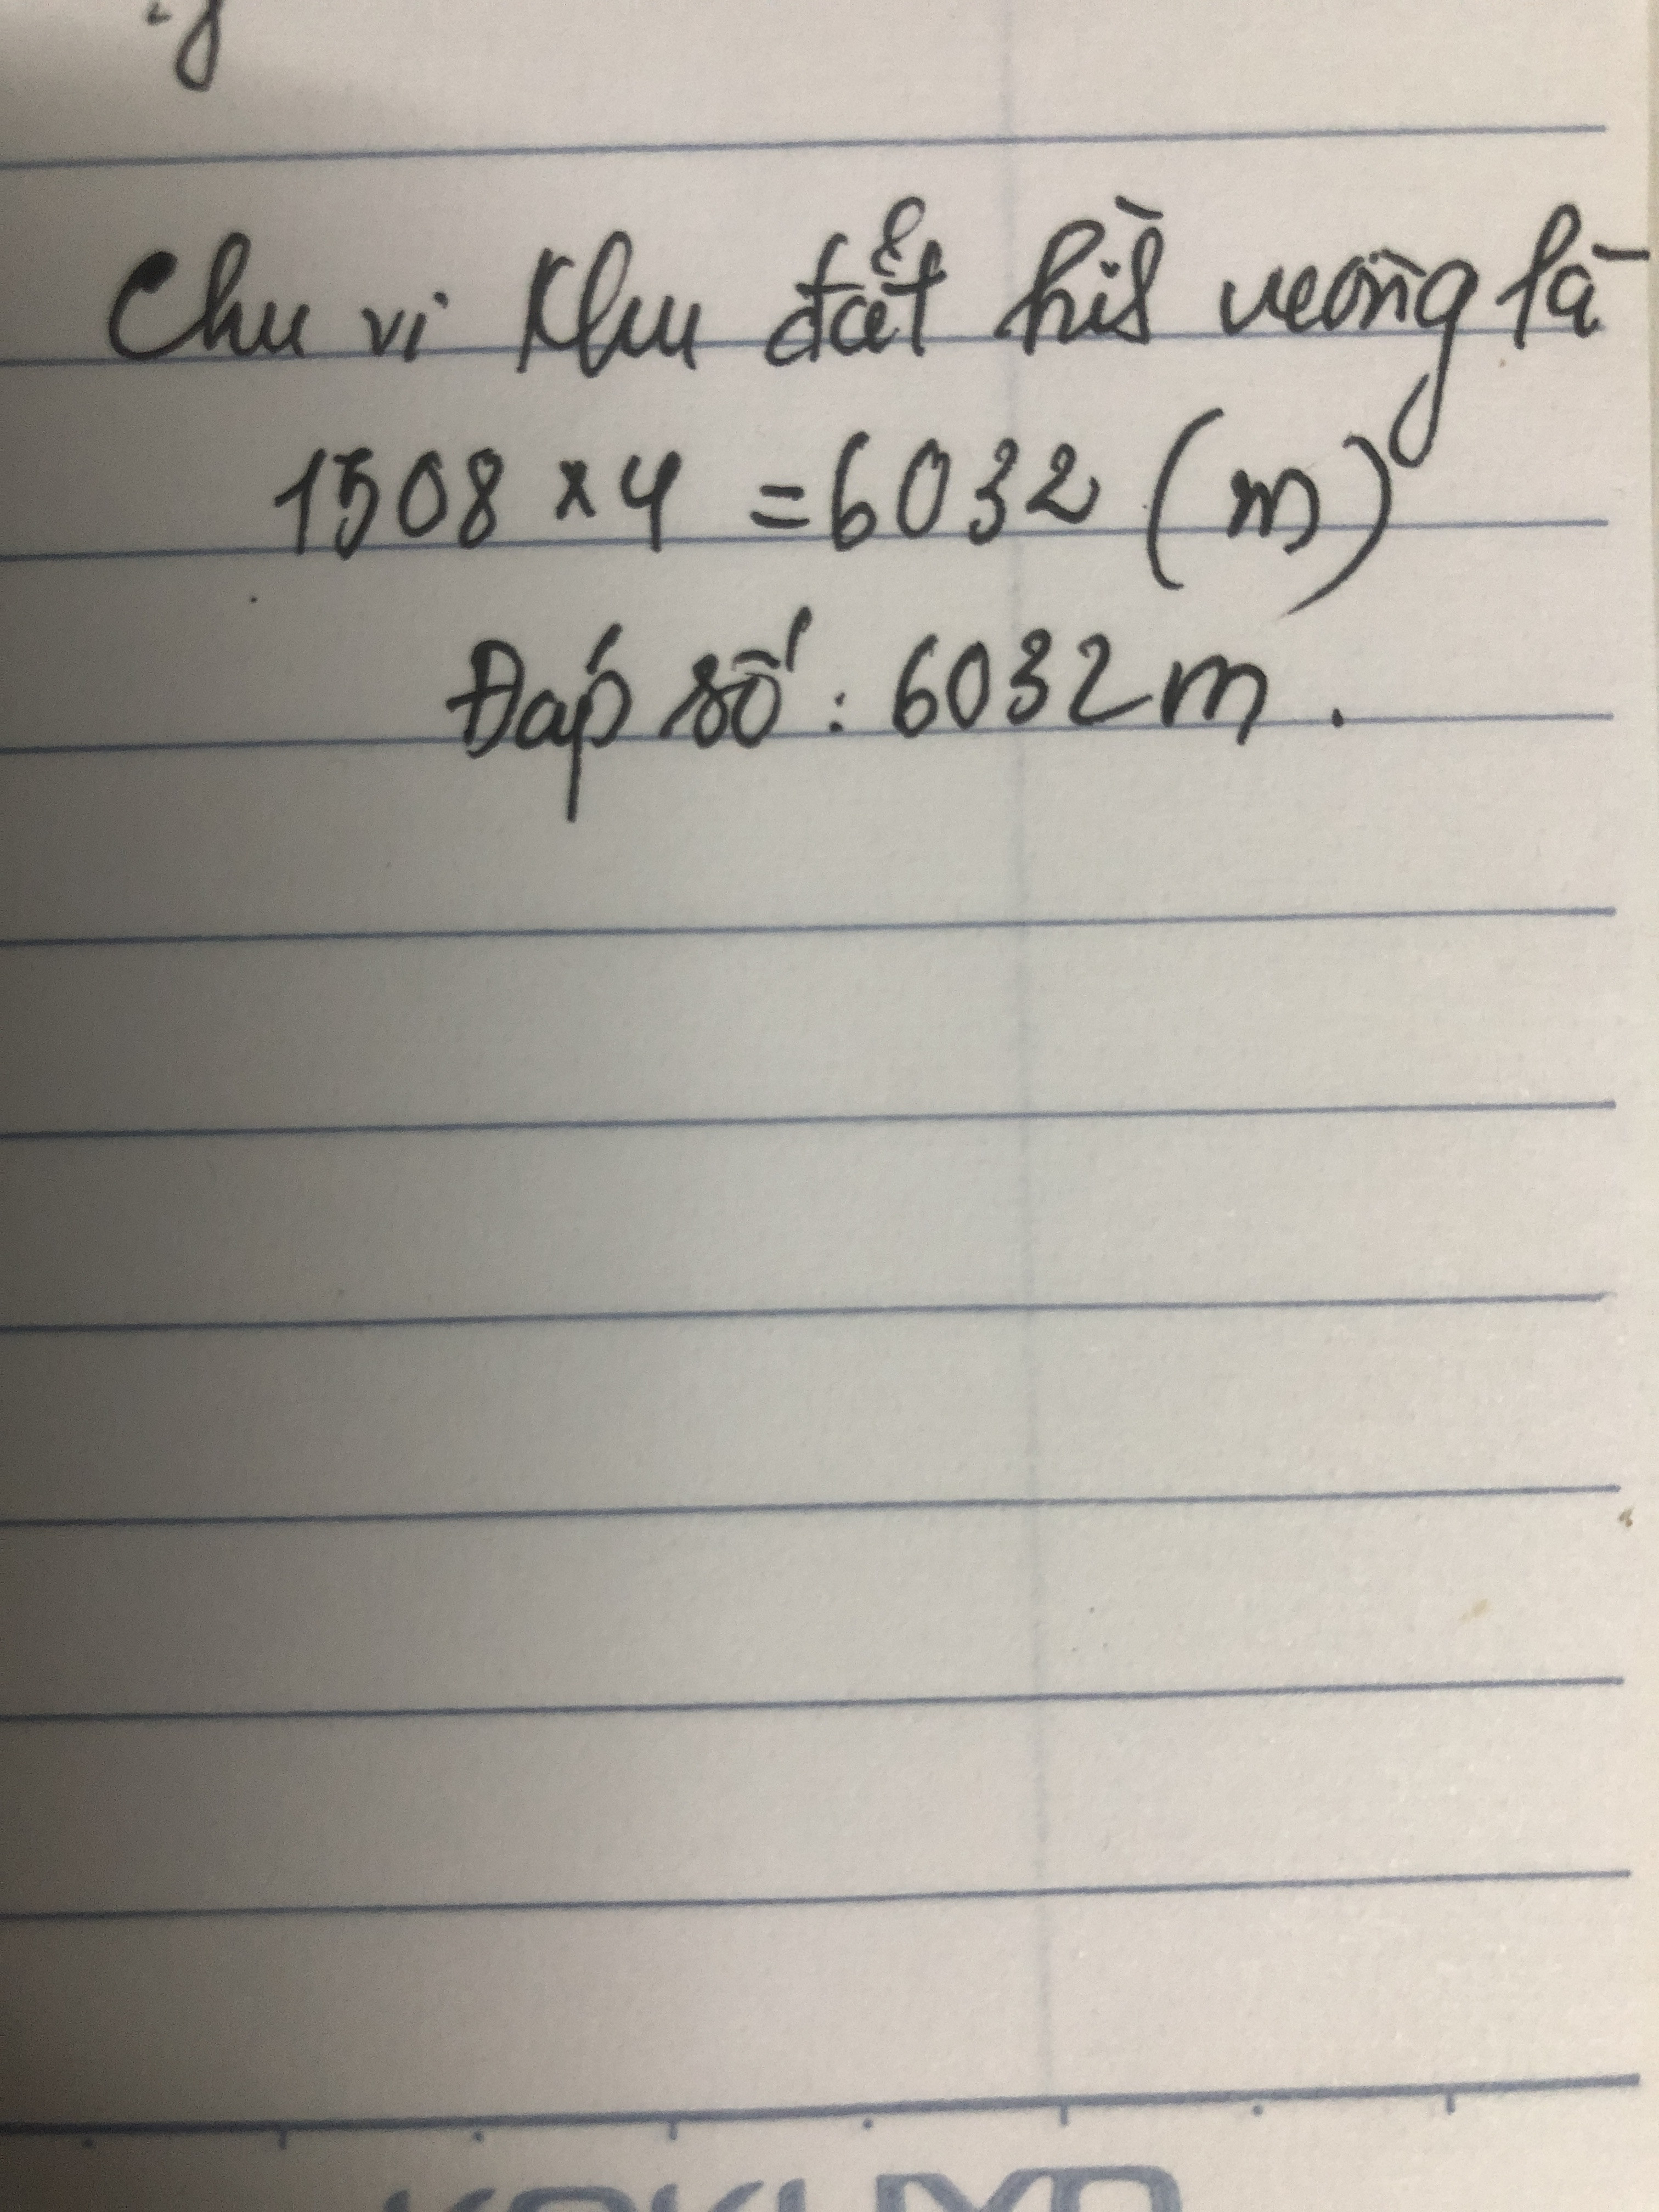 Chu vi khu đất hình vuông là
1508 × 4 = 6032 (m)
Đáp số : 6032 m .
KOKUYO